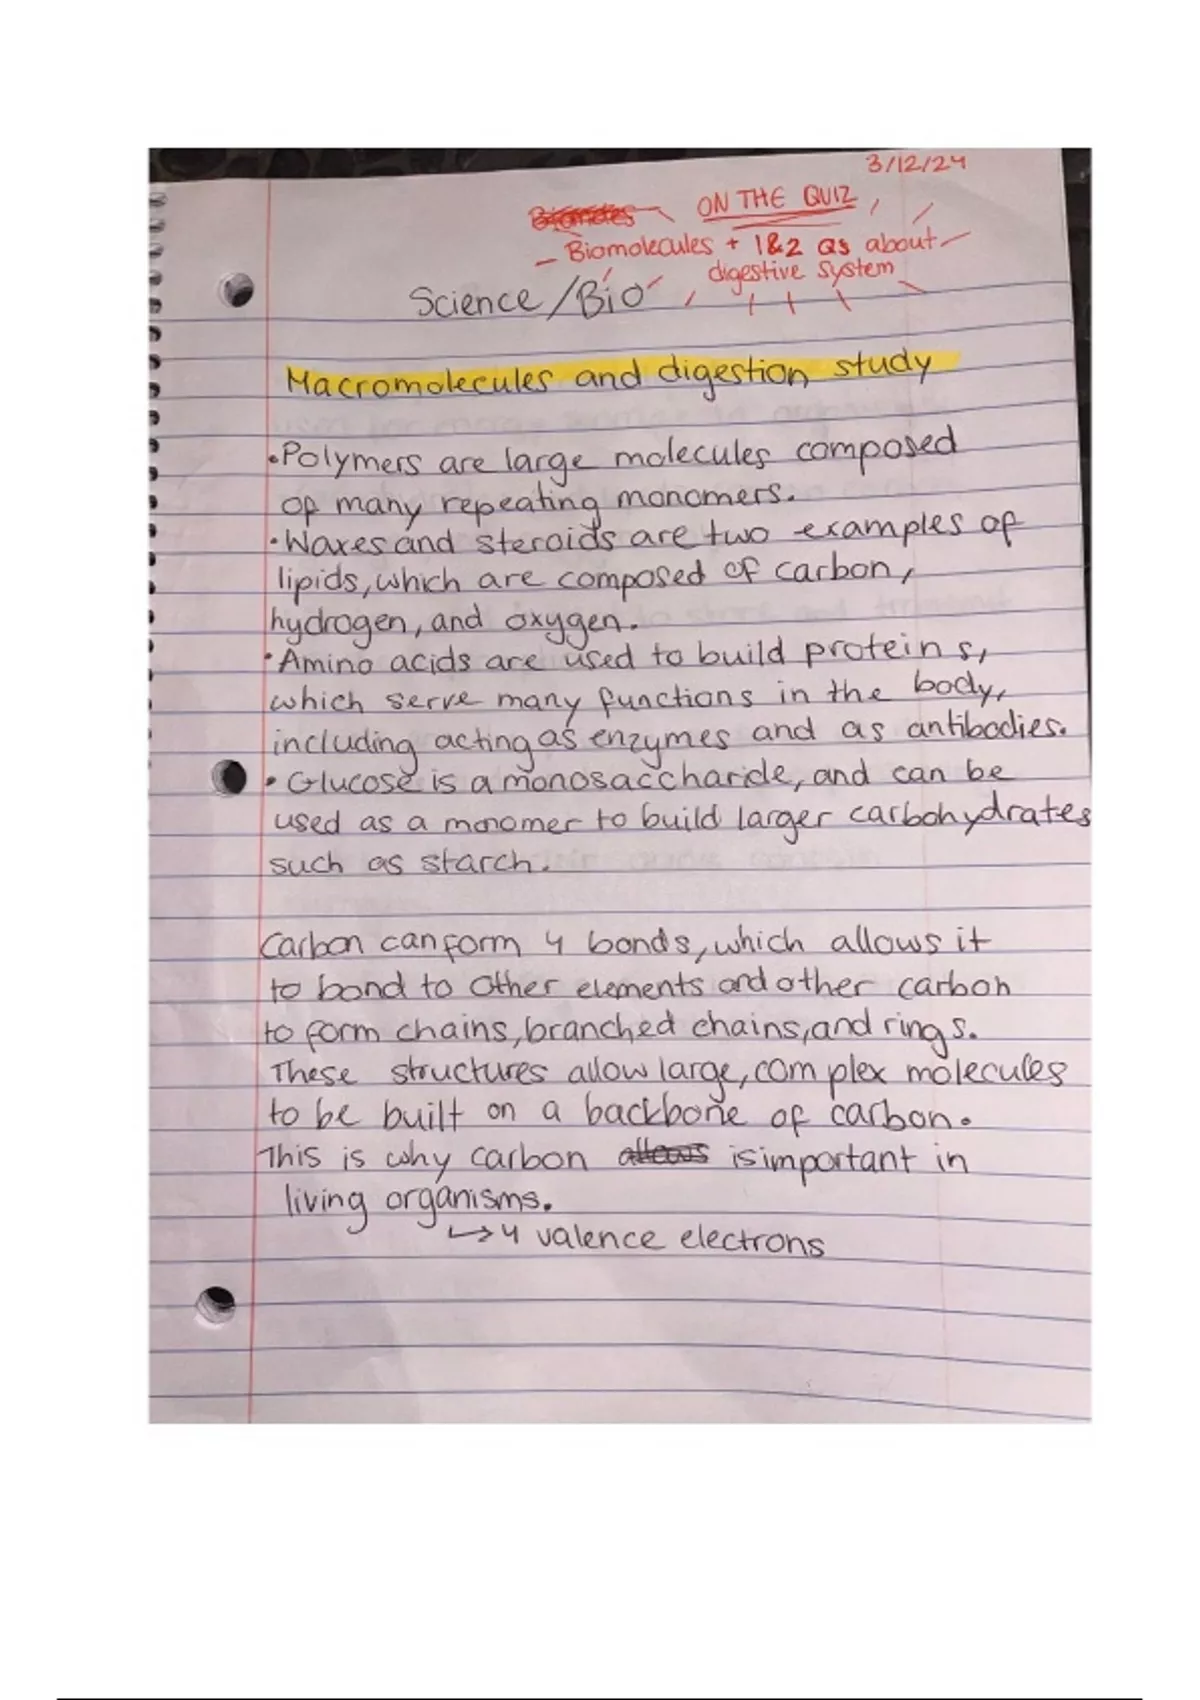 3/12/24
ON THE QUIZ
Biomolecules + 1&2 Qs about
digestive system
Science/Bio
Macromolecules and digestion study
•Polymers are large molecules composed
of many repeating monomers.
•Waxes and steroids are two examples of
lipids, which are composed of carbon,
hydrogen, and oxygen.
•Amino acids are used to build proteins,
which serve many functions in the body,
including acting as enzymes and as antibodies.
•Glucose is a monosaccharide, and can be
used as a monomer to build larger carbohydrates
such as starch.
Carbon can form 4 bonds, which allows it
to bond to other elements and other carbon
to form chains, branched chains, and rings.
These structures allow large, complex molecules
to be built on a backbone of carbon.
This is why carbon allows is important in
living organisms.
↳ 4 valence electrons